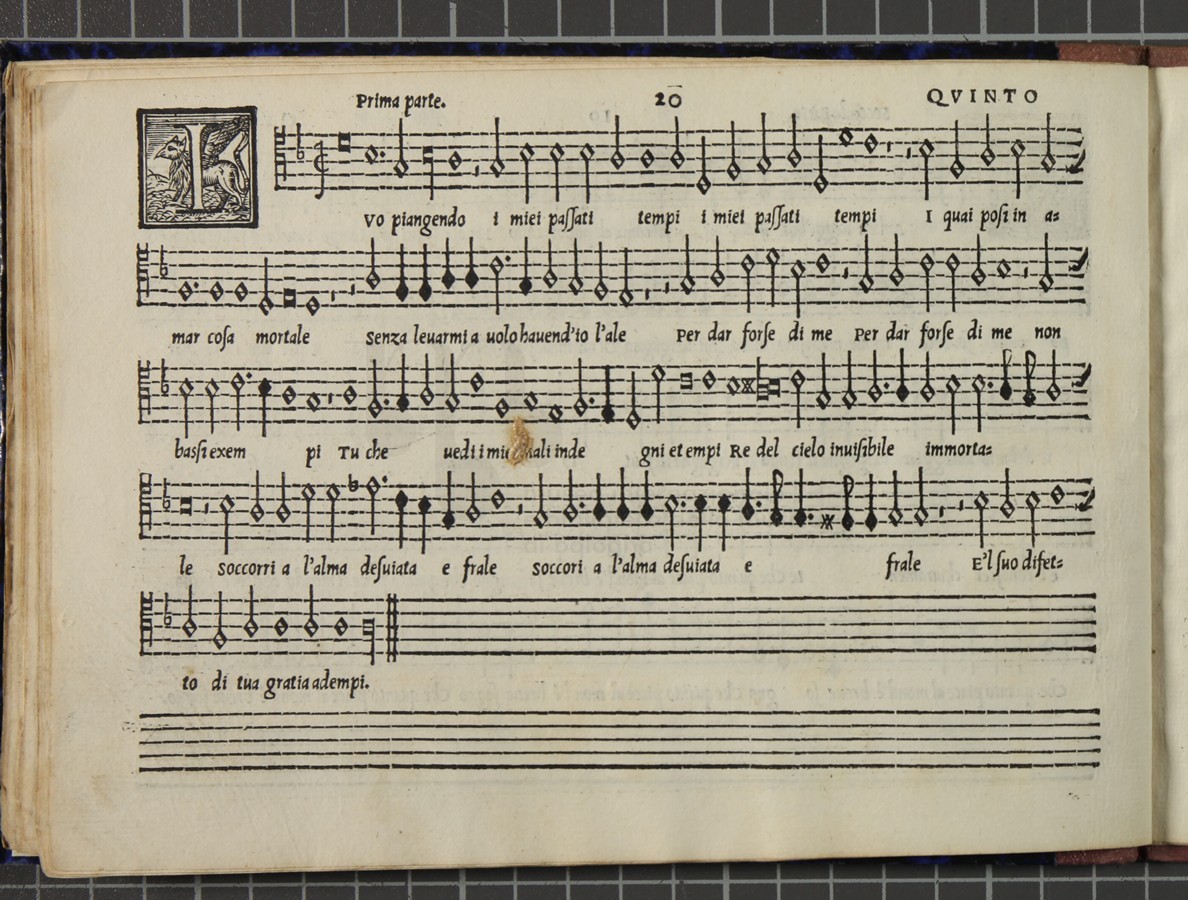 Prima parte. 20 QVINTO
I
VO piangendo i miei paſſati tempi i miei paſſati tempi I quai poſi in a=
mar coſa mortale Senza leuarmi a uolo hauend'io l'ale Per dar forſe di me Per dar forſe di me non
baſsi exem pi Tu che uedi i mie mali inde gni et empi Re del cielo inuiſibile immorta=
le ſoccorri a l'alma deſuiata e frale ſoccori a l'alma deſuiata e frale E'l ſuo difet=
to di tua gratia adempi.